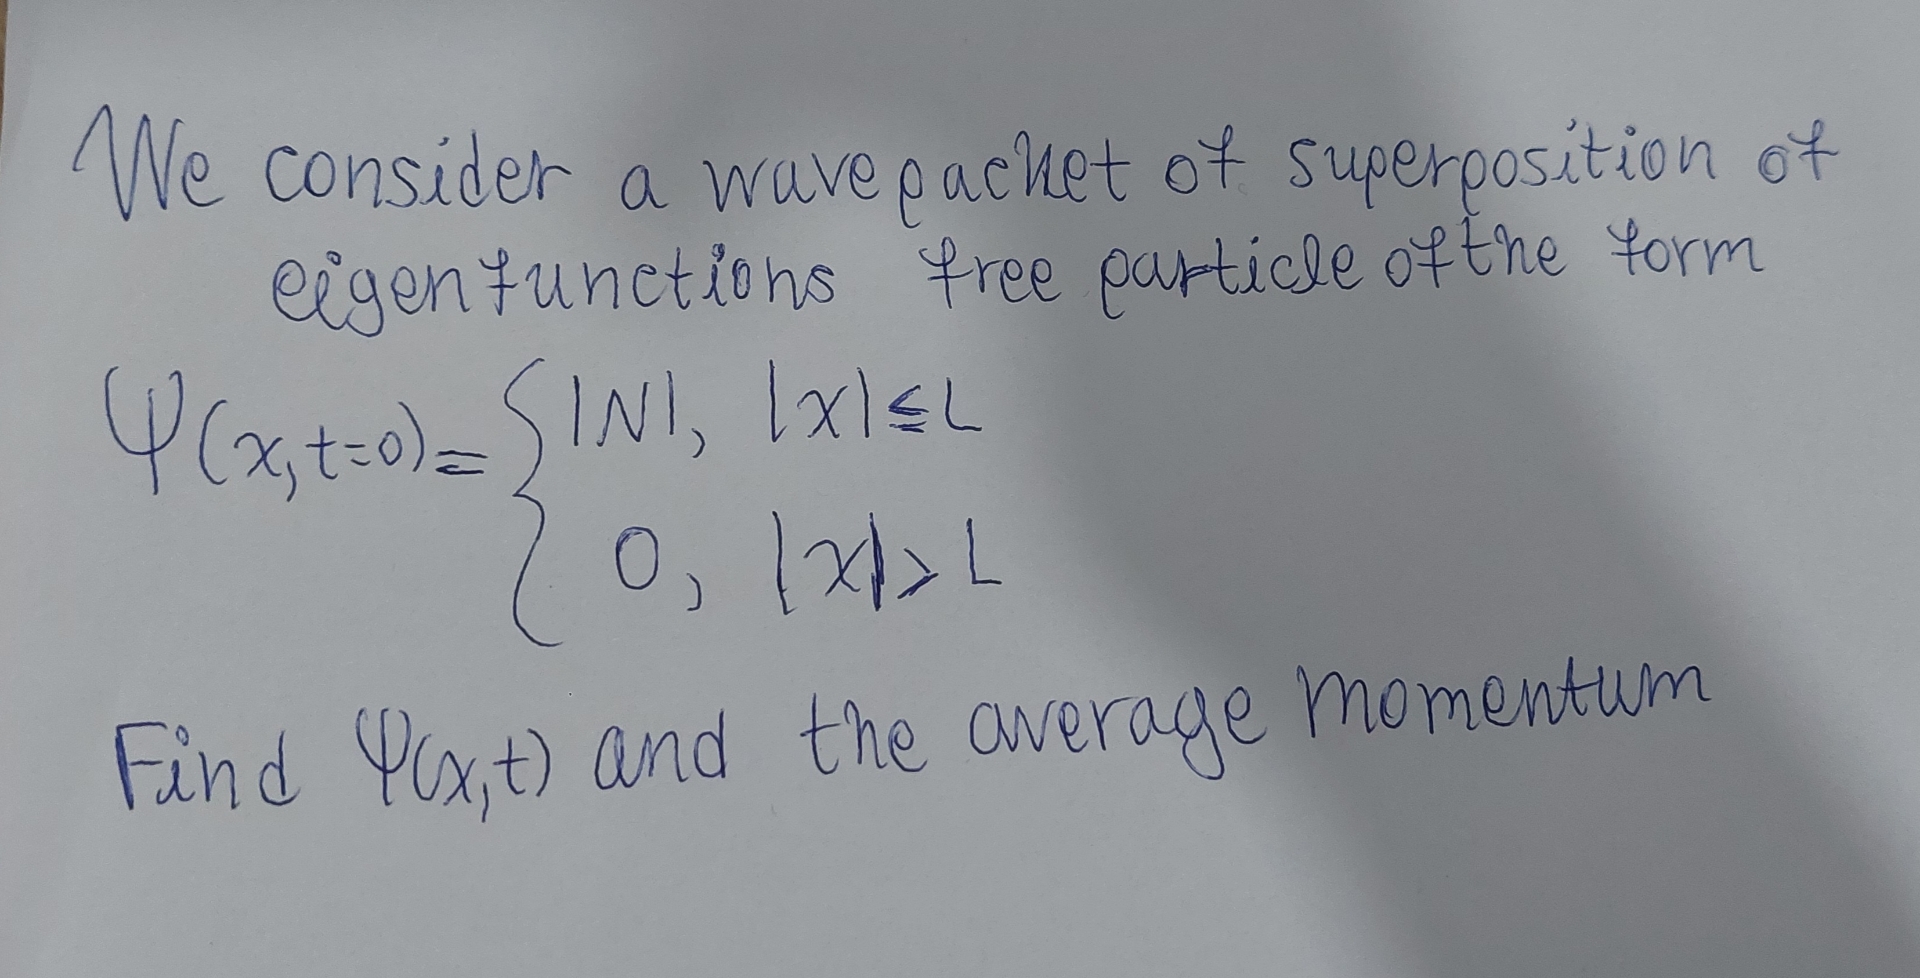 We consider a wavepacket of superposition of
eigenfunctions free particle of the form
Ψ(x,t=0)= { |N|, |x|≤L
0, |x|>L
Find Ψ(x,t) and the average momentum